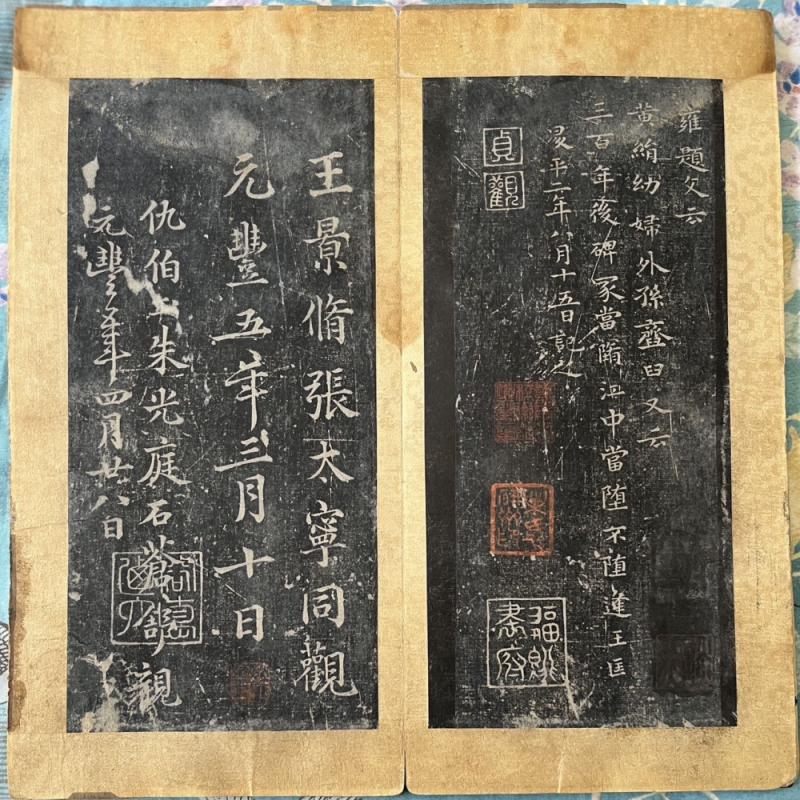 雍題文云
黃絹幼婦外孫齏臼又云
三百年後碑冢當墮江中當墮不墮逢王匡
昇平二年八月十五日記之
貞觀
書府
王景脩張大寧同觀
元豐五年三月十日
仇伯玉朱光庭石蒼舒觀
元豐年四月廿八日